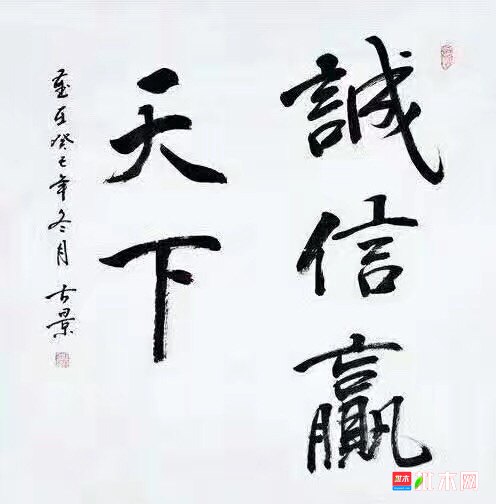 誠信贏
天下
歲在癸巳年冬月 古景